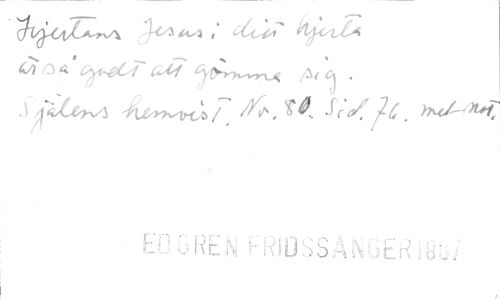 Hjertans Jesus i ditt hjerta
är så godt att gömma sig.
Själens hemvist. No. 80. Sid. 76. met not.
EDGREN FRIDSSÅNGER 1887